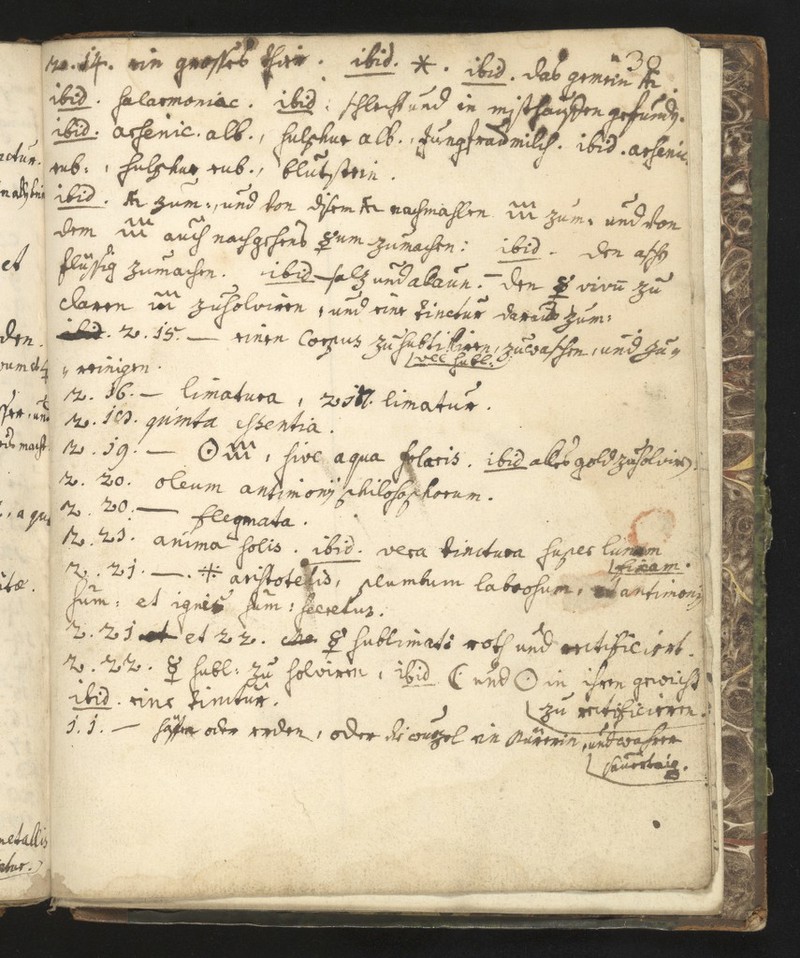 30
2. 14. ein grosses thier. ibid. ✶. ibid. das gemein
ibid. salarmoniac. ibid: schlecht und in misthauffen gefund.
ibid. arsenic. alb., sulphur alb., Jungfraumilch. ibid. arsenic
rub:, sulphur rub., blutstein.
ibid. zum:, und von disem nachmahlen zum: und von
dem auch nachgehens ☿um zumachen: ibid. den
flüssig zumachen. ibid salz und alaun. – den ☿ vivū zu
claren zusolviren, und eine tinctur daraus zum:
ibid. 2. 15. — einen Corpus zu subtiliren, zuwaschen, und zu„
vel subl:
„reinigen.
2. 16. — limatura, limatur.
2. quinta essentia.
2. 19. — ☉, sive aqua solaris. ibid alles gold zusolvirn:
2. 20. oleum antimonij philosophorum.
2. 20. — flegmata.
2. 21. anima solis. ibid. vera tinctura super lunam
fixam.
2. 21. —. ✶ aristotelis, plumbum laboosum, antimonij
sum: et ignis sum: secretus.
2. 21 et et 22. ☿ sublimati roth und rectificiert.
2. 22. ☿ subl: zu solviren, ibid ☾ und ☉ in ihren gewicht
zu rectificieren.
ibid. eine tinctur.
1. 1. — häffen oder erden, oder die wurzel ein, und wasser